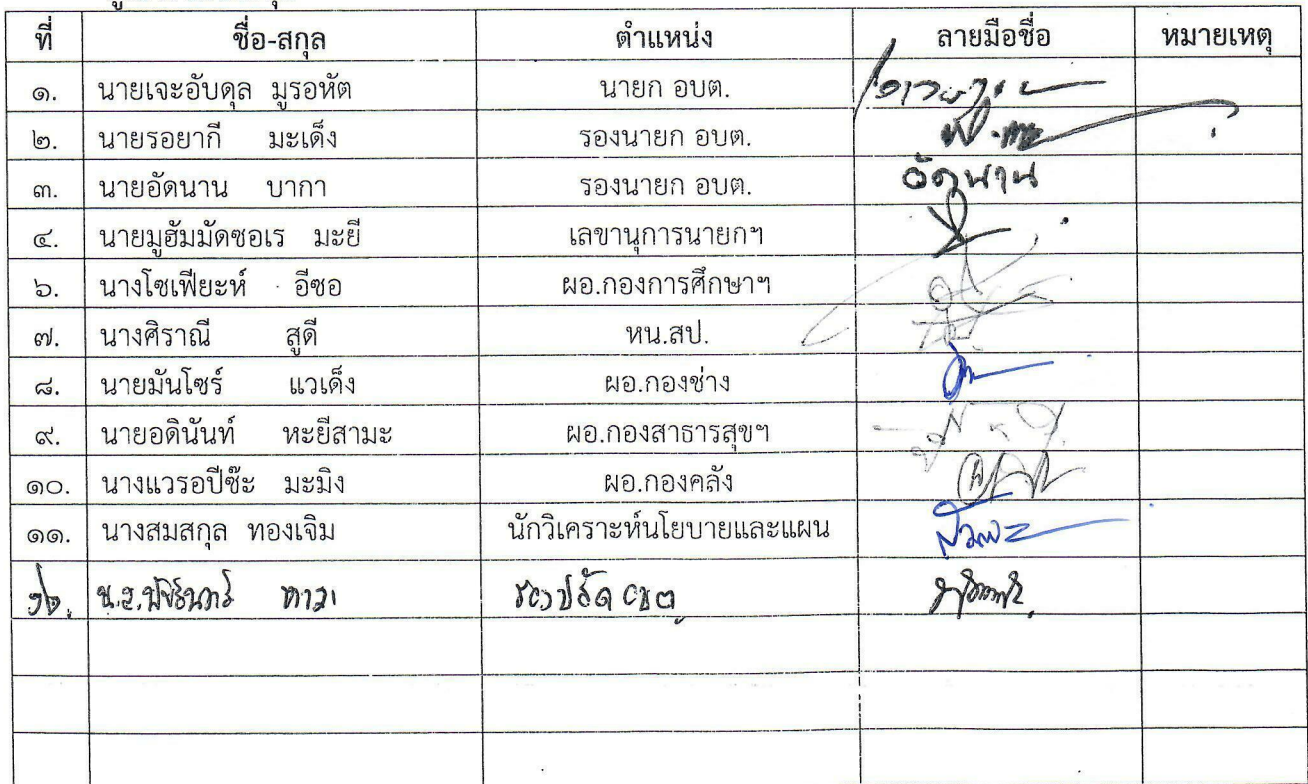 ที่ ชื่อ-สกุล ตำแหน่ง ลายมือชื่อ หมายเหตุ
๑. นายเจะอับดุล มูรอหัต นายก อบต.
๒. นายรอยากี มะเด็ง รองนายก อบต.
๓. นายอัดนาน บากา รองนายก อบต. อัดนาน
๔. นายมูฮัมมัดซอเร มะยี เลขานุการนายกฯ
๖. นางโซเฟียะห์ อีซอ ผอ.กองการศึกษาฯ
๗. นางศิราณี สูดี หน.สป.
๘. นายมันโซร์ แวเด็ง ผอ.กองช่าง
๙. นายอดินันท์ หะยีสามะ ผอ.กองสาธารสุขฯ
๑๐. นางแวรอปีซ๊ะ มะมิง ผอ.กองคลัง
๑๑. นางสมสกุล ทองเจิม นักวิเคราะห์นโยบายและแผน
๑๒. น.ส. รองปลัด อบต